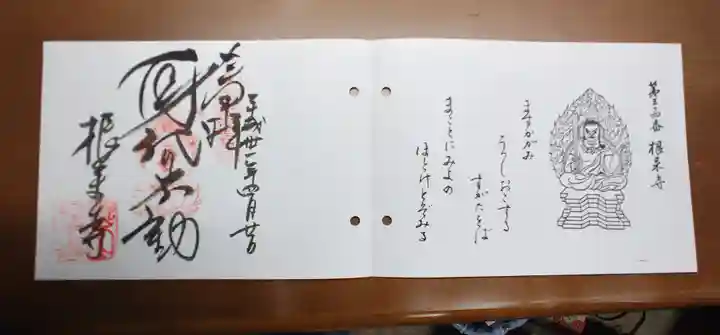 第三十四番 根来寺
ますかがみ
うつしおこする
すがたをば
まことにみよの
ほとけとぞみる
平成卅一年四月廿日
奉拝
身代り不動
根来寺